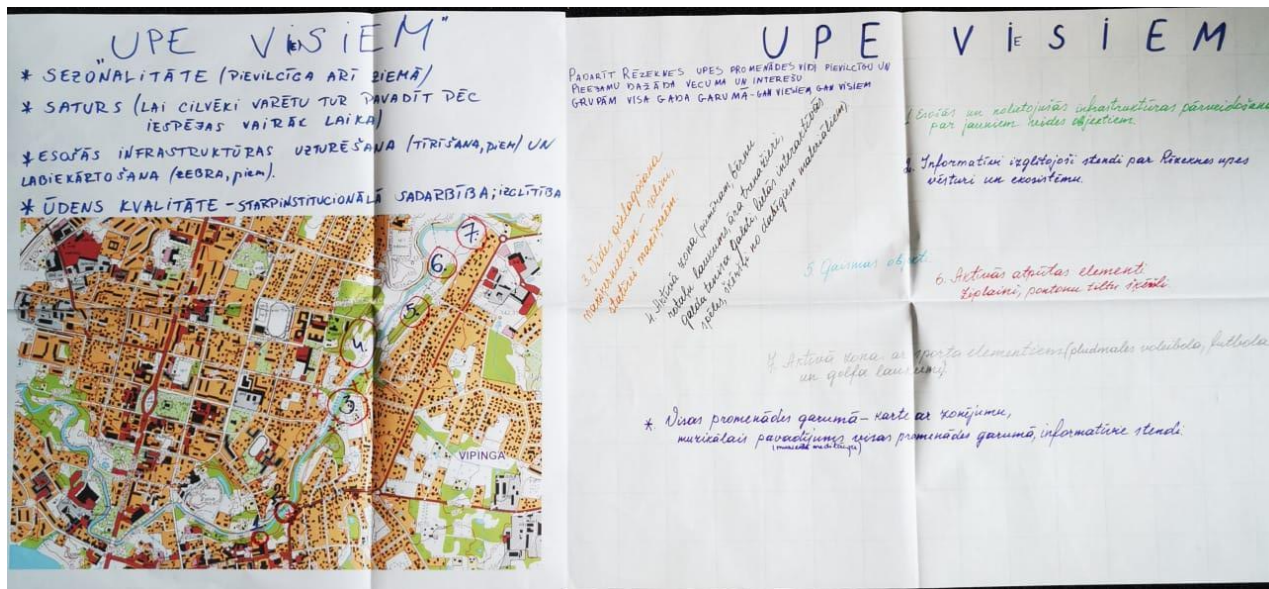 "UPE VIESIEM"
* SEZONALITĀTE (PIEVILCĪGA ARĪ ZIEMĀ)
* SATURS (LAI CILVĒKI VARĒTU TUR PAVADĪT PĒC
IESPĒJAS VAIRĀK LAIKA)
* ESOŠĀS INFRASTRUKTŪRAS UZTURĒŠANA (TĪRĪŠANA, PIEM) UN
LABIEKĀRTOŠANA (ZEBRA, piem).
* ŪDENS KVALITĀTE - STARPINSTITUCIONĀLĀ SADARBĪBA; IZGLĪTĪBA
7.
6.
5.
4.
3.
2.
1.
VIPINGA
UPE VIESIEM
PADARĪT RĒZEKNES UPES PROMENĀDES VIDI PIEVILCĪGU UN
PIEEJAMU DAŽĀDA VECUMA UN INTEREŠU
GRUPĀM VISA GADA GARUMĀ - GAN VIESIEM GAN VISIEM
1. Esošās un nelietojošās infrastruktūras pārveidošana
par jauniem vides objektiem.
2. Informatīvi izglītojoši stendi par Rēzeknes upes
vēsturi un ekosistēmu.
3. Vides pielāgošana
makšķerniekiem - soliņi,
statīvi makšķerēm.
4. Aktīvā zona (piemēram, bērnu
rotaļu laukums, āra trenažieri,
galda tenisa galdi, lielās interaktīvās
spēles, šķēršļi no dabīgiem materiāliem)
5. Gaismas objekti
6. Aktīvās atpūtas elementi
ziplaini, pontonu tiltu šķēršļi.
7. Aktīvā zona ar sporta elementiem (pludmales voleibola, futbola
un golfa laukumi).
* Visas promenādes garumā - karte ar zonējumu,
muzikālais pavadījums visas promenādes garumā, informatīvie stendi.